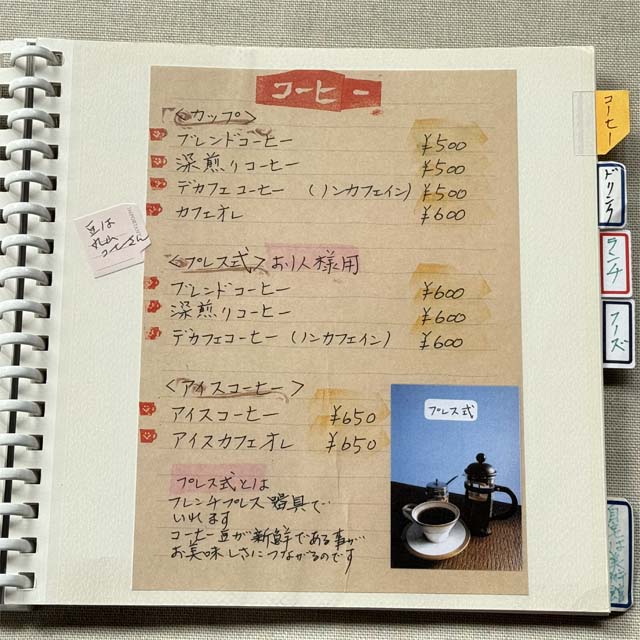 コーヒー
<カップ>
ブレンドコーヒー ¥500
深煎りコーヒー ¥500
デカフェコーヒー (ノンカフェイン) ¥500
カフェオレ ¥600
豆は
丸山
コーヒーさん
<プレス式>お1人様用
ブレンドコーヒー ¥600
深煎りコーヒー ¥600
デカフェコーヒー (ノンカフェイン) ¥600
<アイスコーヒー>
アイスコーヒー ¥650
アイスカフェオレ ¥650
プレス式
プレス式とは
フレンチプレス器具で
いれます
コーヒー豆が新鮮である事が
お美味しさにつながるのです
コーヒー
ドリンク
ランチ
フーズ